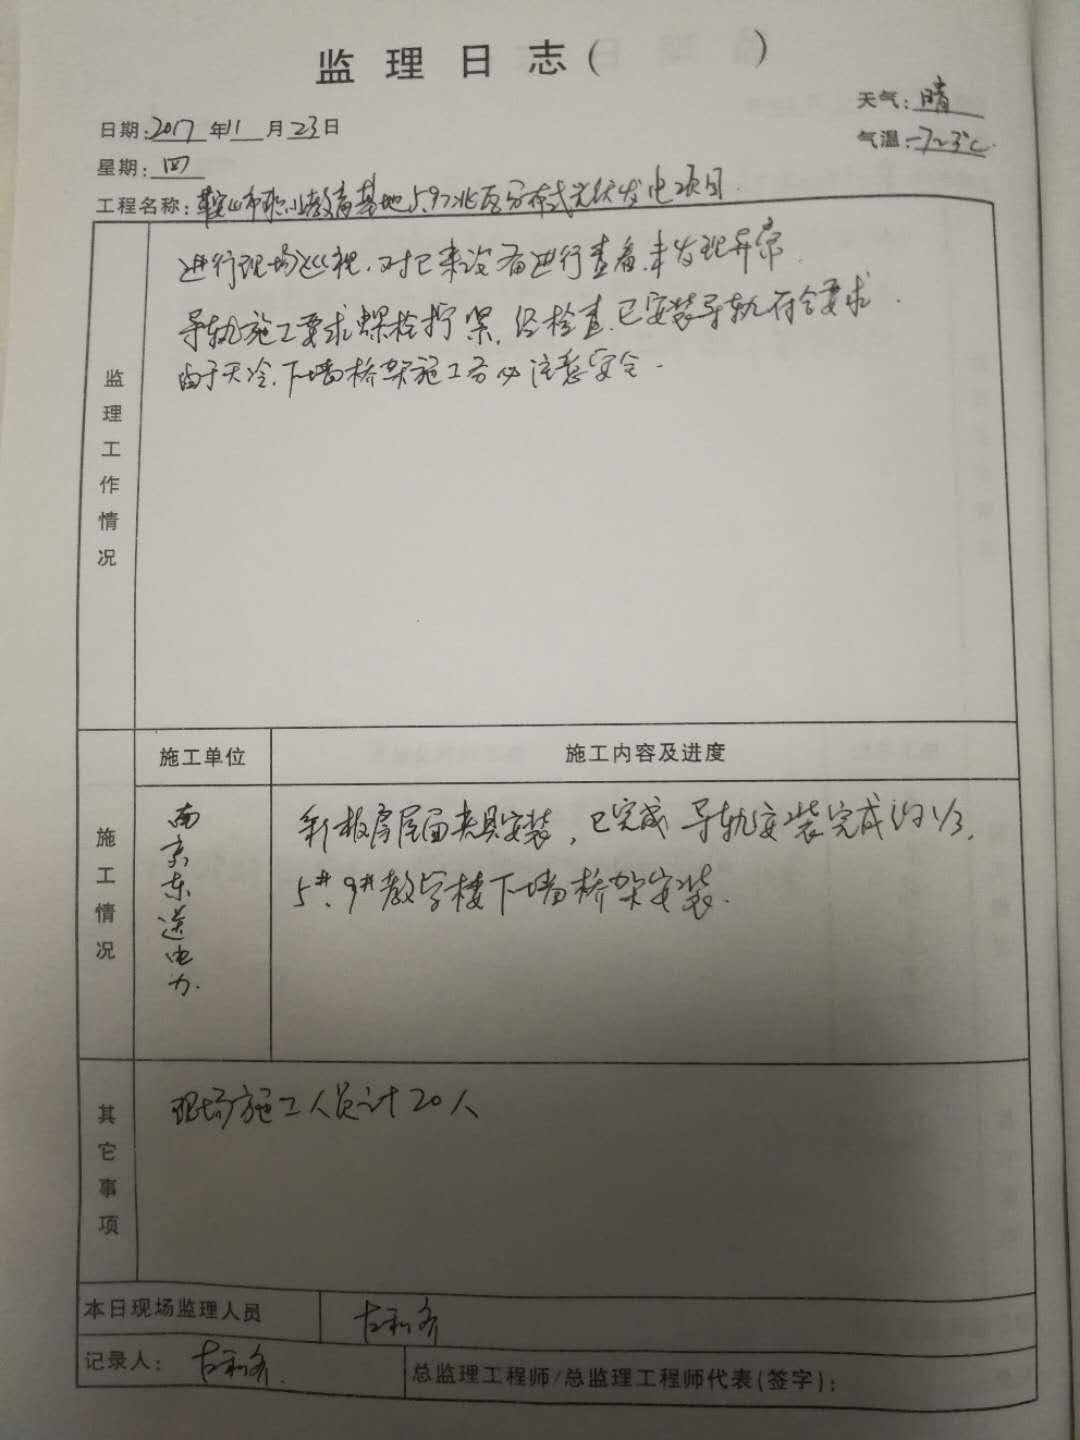 监理日志(　　)
天气:晴
日期:2017年11月23日
气温:-7~3℃
星期:四
工程名称:鞍山市职业教育基地5.97兆瓦分布式光伏发电项目.
监理工作情况
进行现场巡视,对已来设备进行查看,未发现异常.
导轨施工要求螺栓拧紧,经检查,已安装导轨符合要求.
由于天冷,下墙桥架施工务必注意安全.
施工单位
施工内容及进度
施工情况
南京东送电力.
彩板房屋面夹具安装,已完成 导轨安装完成约1/3,
5#、9#教学楼下墙桥架安装.
其它事项
现场施工人员计20人
本日现场监理人员
记录人:
总监理工程师/总监理工程师代表(签字):